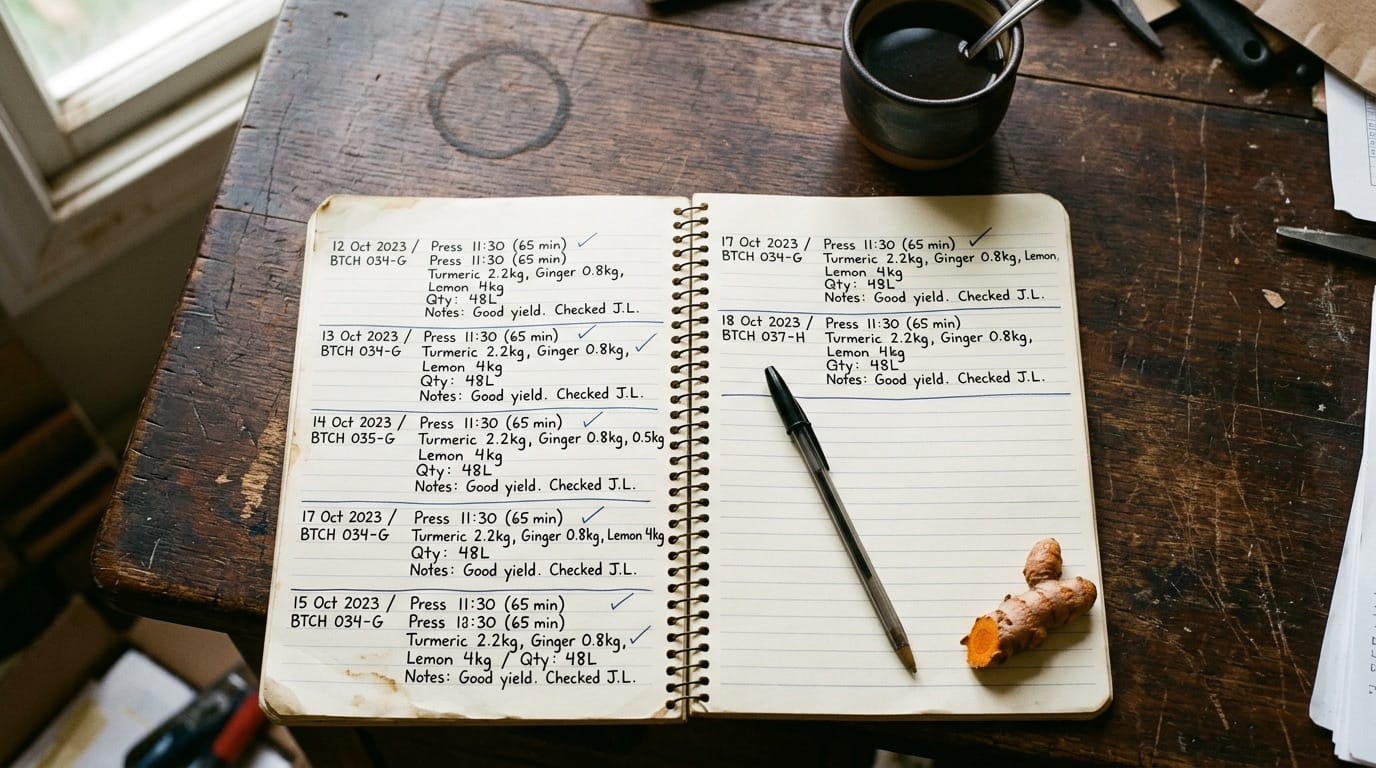 12 Oct 2023 / Press 11:30 (65 min) ✓
BTCH 034-G Press 11:30 (65 min)
Turmeric 2.2kg, Ginger 0.8kg,
Lemon 4kg
Qty: 48L
Notes: Good yield. Checked J.L.
13 Oct 2023 / Press 11:30 (65 min) ✓
BTCH 034-G Turmeric 2.2kg, Ginger 0.8kg, ✓
Lemon 4kg
Qty: 48L
Notes: Good yield. Checked J.L.
14 Oct 2023 / Press 11:30 (65 min) ✓
BTCH 035-G Turmeric 2.2kg, Ginger 0.8kg, 0.5kg
Lemon 4kg
Qty: 48L
Notes: Good yield. Checked J.L.
17 Oct 2023 / Press 11:30 (65 min) ✓
BTCH 034-G Turmeric 2.2kg, Ginger 0.8kg, Lemon 4kg
Qty: 48L
Notes: Good yield. Checked J.L.
15 Oct 2023 / Press 11:30 (65 min) ✓
BTCH 034-G Press 18:30 (65 min)
Turmeric 2.2kg, Ginger 0.8kg, ✓
Lemon 4kg / Qty: 48L
Notes: Good yield. Checked J.L.
17 Oct 2023 / Press 11:30 (65 min) ✓
BTCH 034-G Turmeric 2.2kg, Ginger 0.8kg, Lemon,
Lemon 4kg
Qty: 48L
Notes: Good yield. Checked J.L.
18 Oct 2023 / Press 11:30 (65 min)
BTCH 037-H Turmeric 2.2kg, Ginger 0.8kg,
Lemon 4kg
Qty: 48L
Notes: Good yield. Checked J.L.